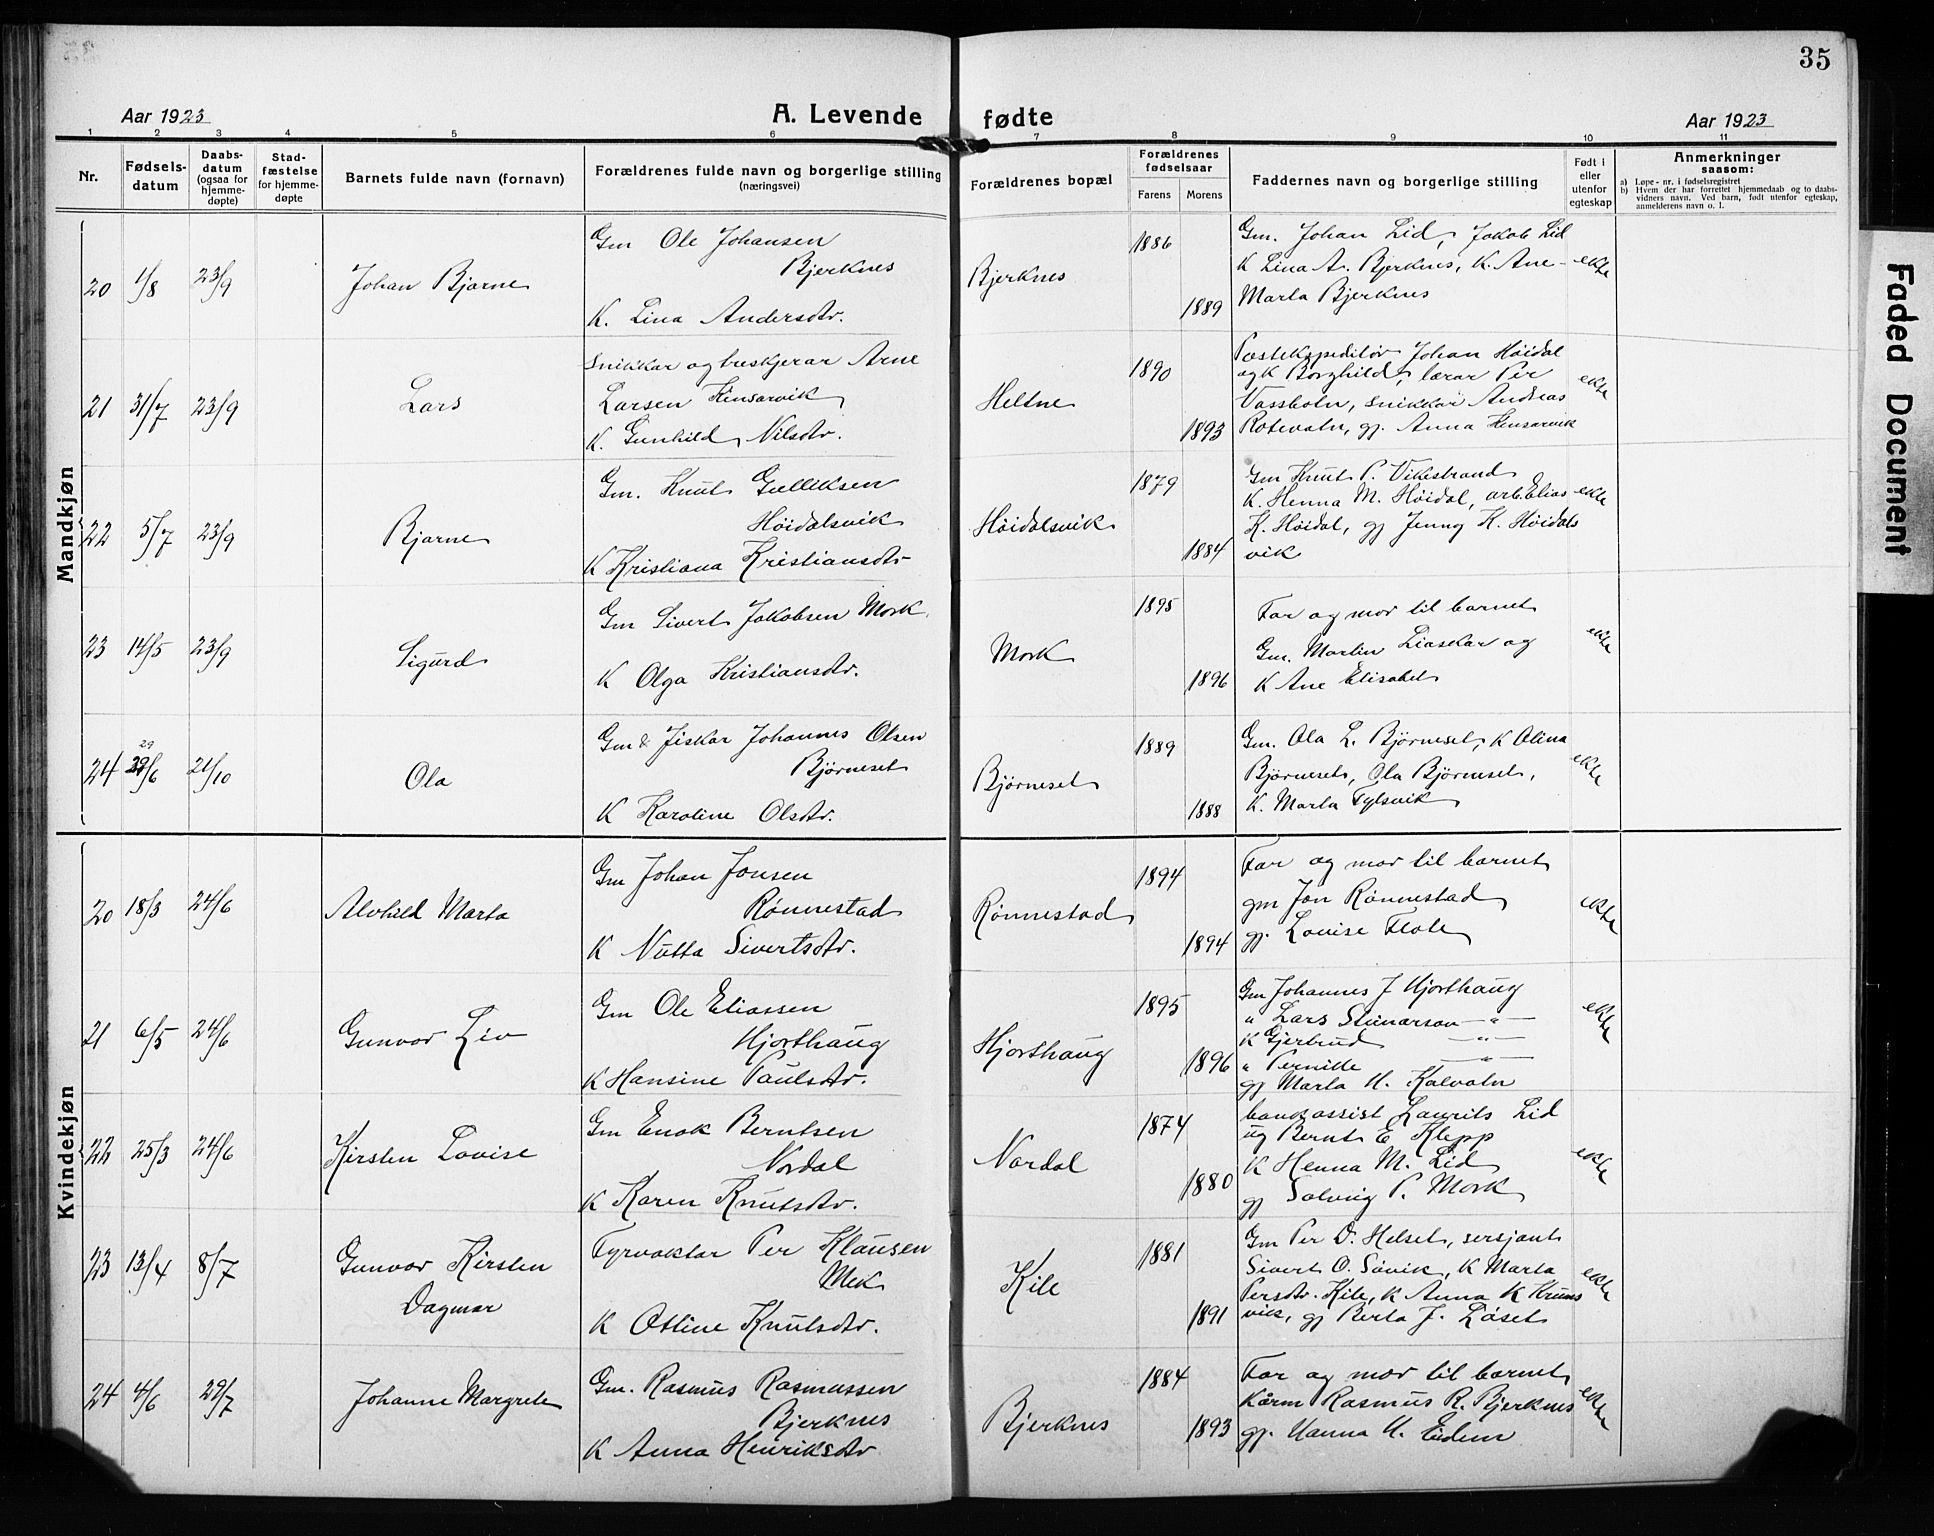 35
Aar 1923
A. Levende
fødte
Aar 1923
1 2 3 4 5 6 7 8 9 10 11
Nr.
Fødsels-
datum
Daabs-
datum
(ogsaa for
hjemme-
døpte)
Stad-
fæstelse
for hjemme-
døpte
Barnets fulde navn (fornavn)
Forældrenes fulde navn og borgerlige stilling
(næringsvei)
Forældrenes bopæl
Forældrenes
fødselsaar
Farens
Morens
Faddernes navn og borgerlige stilling
Født i
eller
utenfor
egteskap
Anmerkninger
saasom:
a) Løpe-nr. i fødselsregistret
b) Hvem der har forrettet hjemmedaab og to daabs-
vidners navn. Ved barn, født utenfor egteskap,
anmelderens navn o. l.
Mandkjøn
20 1/8 23/9 Johan Bjarne
Gm Ole Johansen
Bjerknes
K. Lina Andersdtr.
Bjerknes
1886
1889
Gm. Johan Lid, Jakob Lid
K Lina A. Bjerknes, K. Ane-
Marta Bjerknes
ekte
21 31/7 23/9 Lars
Snikkar og treskjerar Arne
Larsen Kinsarvik
K. Gunhild Nilsdtr.
Heltne
1890
1893
Postekspeditør Johan Höidal
og K Borghild, lærar Per
Vassbotn, snikkar Andreas
Rotevatn, gj. Anna Kinsarvik
ekte
22 5/7 23/9 Bjarne
Gm. Knut Gulliksen
Höidalsvik
K Kristiana Kristiansdtr
Höidalsvik
1879
1884
Gm Knut P. Vikestrand
K. Henna M. Höidal, arb. Elias
K. Höidal, gj Jenny K. Höidals
vik
ekte
23 14/5 23/9 Sigurd
Gm Sivert Jakobsen Mork
K Olga Kristiansdtr.
Mork
1895
1896
Far og mor til barnet
Gm. Martin Liaskar og
K Ane Elisabet
ekte
24 29 /6 21/10 Ola
Gm & fiskar Johannes Olsen
Bjørneset
K Karoline Olsdtr.
Bjørneset
1889
1888
Gm. Ola L. Bjørneset, K Olina
Bjørneset, Ola Bjørneset,
K. Marta Fylsvik
ekte
Kvindekjøn
20 18/3 24/6 Alvhild Marta
Gm Johan Jonsen
Rönnestad
K Nutta Sivertsdtr.
Rönnestad
1894
1894
Far og mor til barnet
gm Jon Rönnestad
gj. Lovise Flote
ekte
21 6/5 24/6 Gunvor Liv
Gm Ole Eliassen
Hjorthaug
K Hansine Paulsdtr.
Hjorthaug
1895
1896
Gm Johannes J Hjorthaug
" Lars Steinarson — " —
K Gjertrud — " —
" Pernille — " —
gj Marta H. Kalvatn
ekte
22 25/3 24/6 Kirsten Lovise
Gm Enok Berntsen
Nordal
K Karen Knutsdtr.
Nordal
1874
1880
bankassist Laurits Lid
ug Bernt E Klepp
K Henna M. Lid
gj Solveig P. Mork
ekte
23 13/4 8/7 Gunvor Kirsten
Dagmar
Fyrvaktar Per Klausen
Mek
K Ostine Knutsdtr.
Kile
1881
1891
Gm Per D. Helset, sersjant
Sivert O. Såvik, K Marta
Persdtr. Kile, K Anna K Krums
vik, gj Berta J. Løset
ekte
24 4/6 29/7 Johanne Margrete
Gm. Rasmus Rasmussen
Bjerknes
K Anna Henriksdtr
Bjerknes
1884
1893
Far og mor til barnet
Kårm Rasmus R. Bjerknes
gj. Hanna H. Eidem
ekte
Faded Document